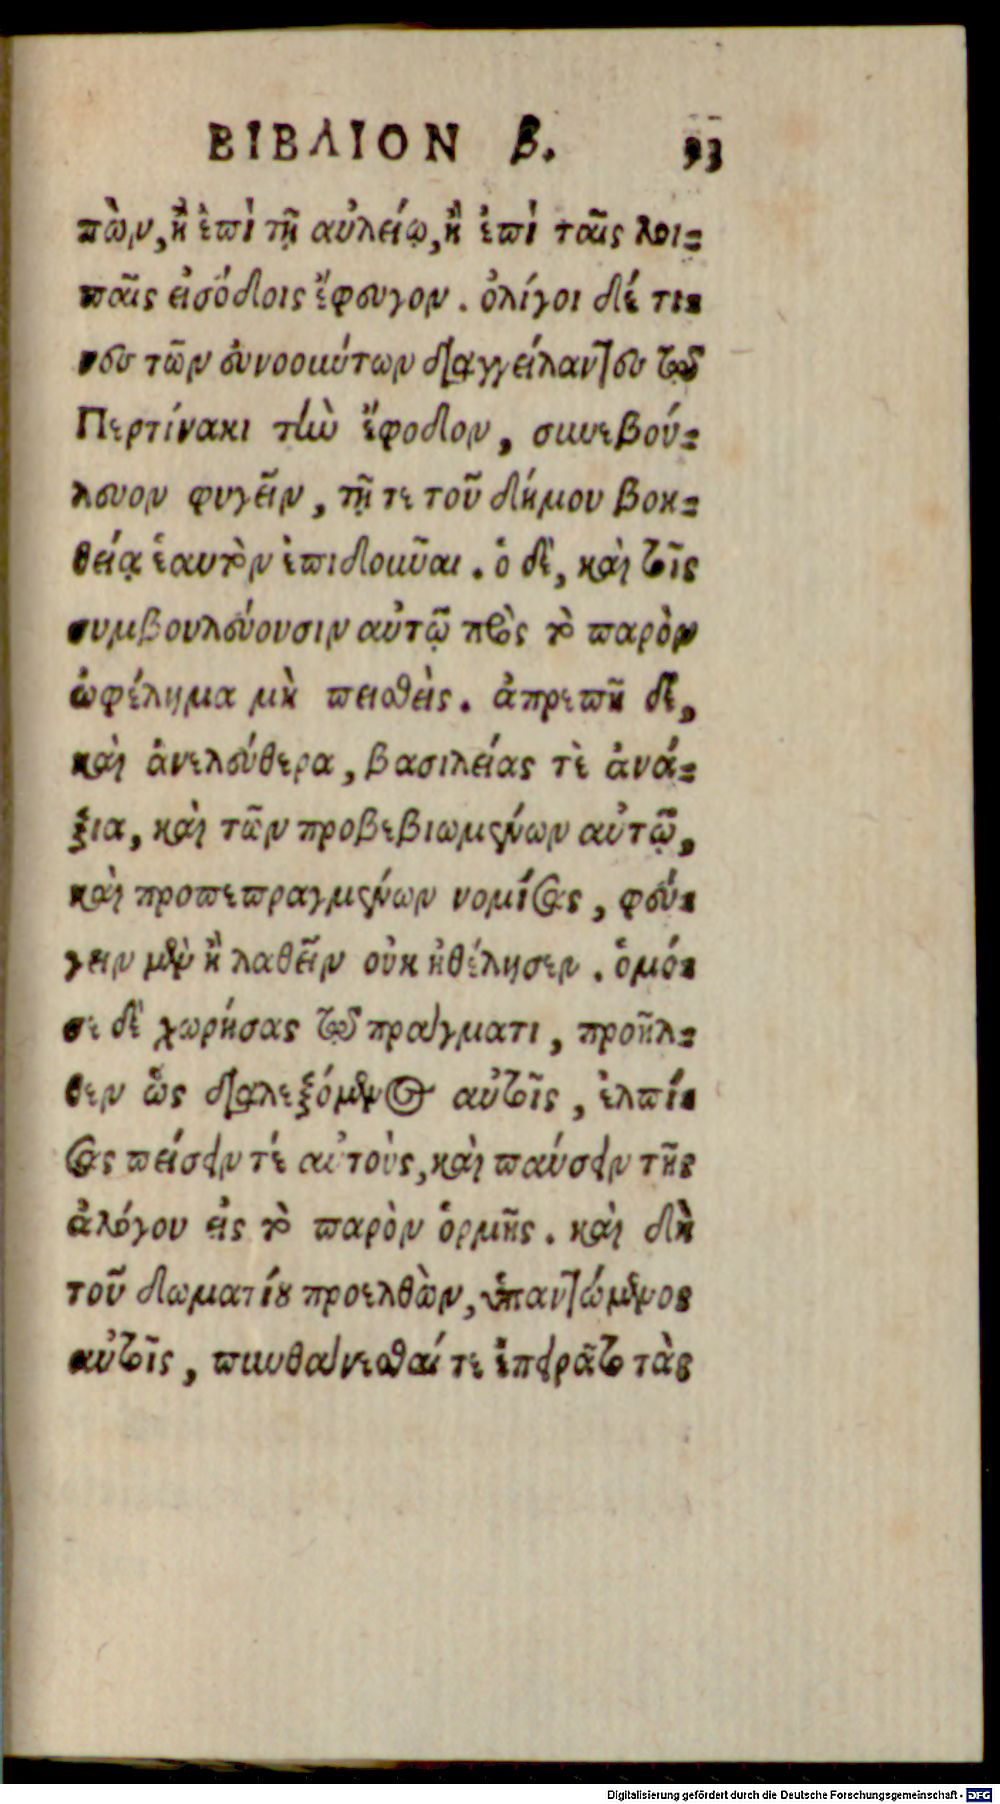 ΒΙΒΛΙΟΝ β. 93
πὼν, ἢ ἐπὶ τῇ αὐλείῳ, ἢ ἐπὶ ταῖς λοι-
παῖς εἰσόδοις ἔφευγον. ὀλίγοι δέ τι-
νες τῶν ἐυνοούντων διαγγείλαντες τῷ
Περτίνακι τὴν ἔφοδον, συνεβού-
λευον φυγεῖν, τῇ τε τοῦ δήμου βοη-
θείᾳ ἑαυτὸν ἐπιδοῦναι. ὁ δὲ, καὶ τοῖς
συμβουλεύουσιν αὐτῷ πρὸς τὸ παρὸν
ὠφέλημα μὴ πεισθεὶς. ἀπρεπῆ δὲ,
καὶ ἀνελεύθερα, βασιλείας τὲ ἀνά-
ξια, καὶ τῶν προβεβιωμένων αὐτῷ,
καὶ προπεπραγμένων νομίσας, φεύ-
γειν μὲν ἢ λαθεῖν οὐκ ἠθέλησεν. ὁμό-
σε δὲ χωρήσας τῷ πράγματι, προῆλ-
θεν ὡς διαλεξόμενος αὐτοῖς, ἐλπί-
σας πείσειν τέ αὐτοὺς, καὶ παύσειν τῆς
ἀλόγου εἰς τὸ παρὸν ὁρμῆς. καὶ δὴ
τοῦ δωματίου προελθὼν, ὑπαντώμενος
αὐτοῖς, πυνθάνεσθαί τε ἐπειρᾶτο τὰς
Digitalisierung gefördert durch die Deutsche Forschungsgemeinschaft - DFG